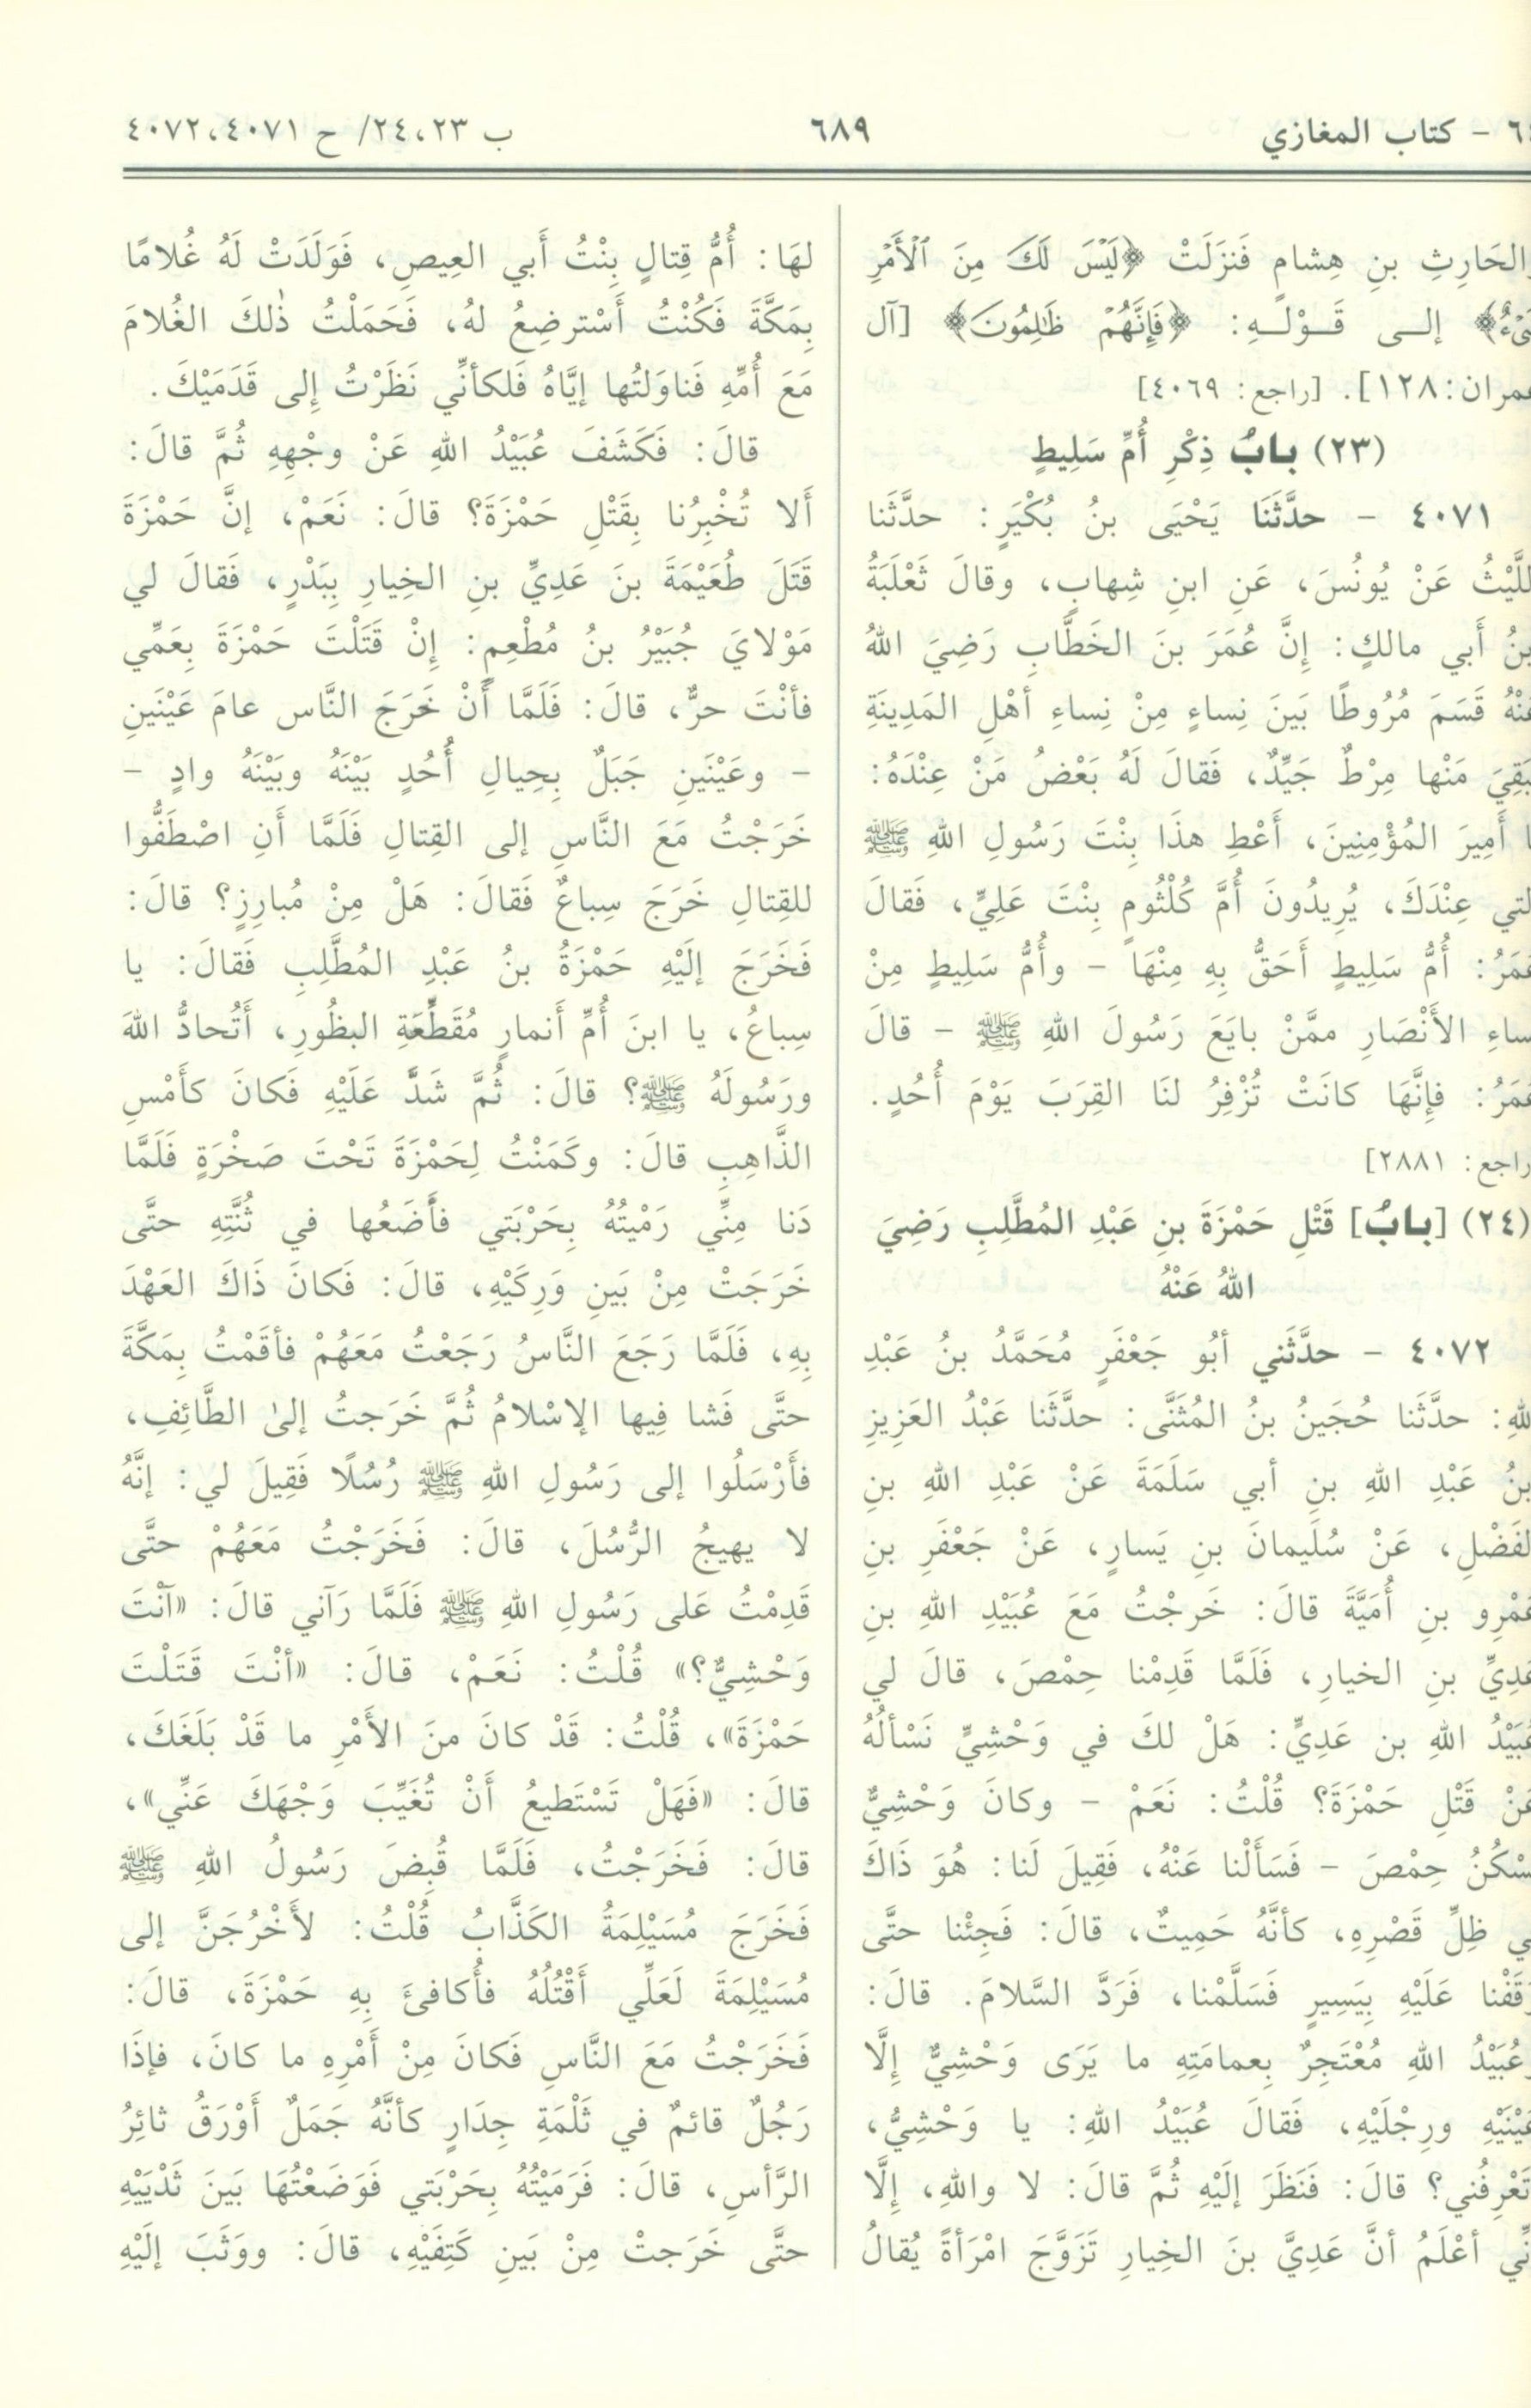 كتاب المغازي
٦٨٩
ب ٢٣، ٢٤/ ح ٤٠٧١، ٤٠٧٢
الحَارِثِ بنِ هِشامٍ فَنزَلَتْ ﴿لَيْسَ لَكَ مِنَ ٱلْأَمْرِ
إلـى قَـوْلـهِ: ﴿فَإِنَّهُمْ ظَالِمُونَ﴾ [آل
١٢٨]. [راجع: ٤٠٦٩]
(٢٣) بابُ ذِكْرِ أُمِّ سَلِيطٍ
٤٠٧١ - حدَّثَنَا يَحْيَى بنُ بُكَيْرٍ: حدَّثَنا
عَنْ يُونُسَ، عَنِ ابنِ شِهابٍ، وقالَ ثَعْلَبَةُ
أَبي مالكٍ: إنَّ عُمَرَ بنَ الخَطَّابِ رَضِيَ اللهُ
قَسَمَ مُرُوطًا بَينَ نِساءٍ مِنْ نِساءِ أهْلِ المَدِينَةِ
مَنْها مِرْطٌ جَيِّدٌ، فَقالَ لَهُ بَعْضُ مَنْ عِنْدَهُ:
أَمِيرَ المُؤْمِنِينَ، أَعْطِ هذَا بِنْتَ رَسُولِ اللهِ ﷺ
عِنْدَكَ، يُرِيدُونَ أُمَّ كُلْثُومٍ بِنْتَ عَلِيٍّ، فَقالَ
أُمُّ سَلِيطٍ أَحَقُّ بِهِ مِنْهَا - وأُمُّ سَلِيطٍ مِنْ
الأَنْصَارِ ممَّنْ بايَعَ رَسُولَ اللهِ ﷺ - قالَ
فإِنَّهَا كانَتْ تُزْفِرُ لنَا القِرَبَ يَوْمَ أُحُدٍ.
راجع: ٢٨٨١]
(٢٤) [بابُ] قَتْلِ حَمْزَةَ بنِ عَبْدِ المُطَّلِبِ رَضِيَ
اللهُ عَنْهُ
٤٠٧٢ - حدَّثَني أبُو جَعْفَرٍ مُحَمَّدُ بنُ عَبْدِ
حدَّثَنا حُجَينُ بنُ المُثَنَّى: حدَّثَنا عَبْدُ العَزِيزِ
عَبْدِ اللهِ بنِ أبي سَلَمَةَ عَنْ عَبْدِ اللهِ بنِ
عَنْ سُلَيمانَ بنِ يَسارٍ، عَنْ جَعْفَرِ بنِ
بنِ أُمَيَّةَ قالَ: خَرجْتُ مَعَ عُبَيْدِ اللهِ بنِ
بنِ الخيارِ، فَلَمَّا قَدِمْنا حِمْصَ، قالَ لي
اللهِ بن عَدِيٍّ: هَلْ لكَ في وَحْشِيٍّ نَسْألُهُ
قَتْلِ حَمْزَةَ؟ قُلْتُ: نَعَمْ - وكانَ وَحْشِيٌّ
حِمْصَ - فَسَأَلْنا عَنْهُ، فَقِيلَ لَنا: هُوَ ذَاكَ
ظِلِّ قَصْرِهِ، كأنَّهُ حَمِيتٌ، قالَ: فَجِئْنا حتَّى
عَلَيْهِ بِيَسِيرٍ فَسَلَّمْنا، فَرَدَّ السَّلامَ. قالَ:
عُبَيْدُ اللهِ مُعْتَجِرٌ بِعمامَتِهِ ما يَرَى وَحْشِيٌّ إلَّا
ورِجْلَيْهِ، فَقالَ عُبَيْدُ اللهِ: يا وَحْشِيُّ،
تَعْرِفُني؟ قالَ: فَنَظَرَ إلَيْهِ ثُمَّ قالَ: لا واللهِ، إلَّا
أعْلَمُ أنَّ عَدِيَّ بنَ الخِيارِ تَزَوَّجَ امْرَأةً يُقالُ
لهَا: أُمُّ قِتالٍ بِنْتُ أَبي العِيصِ، فَوَلَدَتْ لَهُ غُلامًا
بِمَكَّةَ فَكُنْتُ أَسْترضِعُ لهُ، فَحَمَلْتُ ذٰلكَ الغُلامَ
مَعَ أُمِّهِ فَناوَلتُها إيَّاهُ فَلكأنِّي نَظَرْتُ إلى قَدَمَيْكَ.
قالَ: فَكَشَفَ عُبَيْدُ اللهِ عَنْ وجْهِهِ ثُمَّ قالَ:
أَلا تُخْبِرُنا بِقَتْلِ حَمْزَةَ؟ قالَ: نَعَمْ، إنَّ حَمْزَةَ
قَتَلَ طُعَيْمَةَ بنَ عَدِيِّ بنِ الخِيارِ بِبَدْرٍ، فَقالَ لي
مَوْلايَ جُبَيْرُ بنُ مُطْعِمٍ: إنْ قَتَلْتَ حَمْزَةَ بِعَمِّي
فأنْتَ حرٌّ، قالَ: فَلَمَّا أَنْ خَرَجَ النَّاس عامَ عَيْنَينِ
- وعَيْنَينِ جَبَلٌ بِحِيالِ أُحُدٍ بَيْنَهُ وبَيْنَهُ وادٍ -
خَرَجْتُ مَعَ النَّاسِ إلى القِتالِ فَلَمَّا أَنِ اصْطَفُّوا
للقِتالِ خَرَجَ سِباعٌ فَقالَ: هَلْ مِنْ مُبارِزٍ؟ قالَ:
فَخَرَجَ إلَيْهِ حَمْزَةُ بنُ عَبْدِ المُطَّلِبِ فَقالَ: يا
سِباعُ، يا ابنَ أُمِّ أَنمارٍ مُقَطِّعَةِ البظُورِ، أَتُحادُّ اللهَ
ورَسُولَهُ ﷺ؟ قالَ: ثُمَّ شَدَّ عَلَيْهِ فَكانَ كأَمْسِ
الذَّاهِبِ قالَ: وكَمَنْتُ لِحَمْزَةَ تَحْتَ صَخْرَةٍ فَلَمَّا
دَنا مِنِّي رَمْيتُهُ بِحَرْبَتي فأَضَعُها في ثُنَّتِهِ حتَّى
خَرَجَتْ مِنْ بَينِ وَرِكَيْهِ، قالَ: فَكانَ ذَاكَ العَهْدَ
بِهِ، فَلَمَّا رَجَعَ النَّاسُ رَجَعْتُ مَعَهُمْ فأقَمْتُ بِمَكَّةَ
حتَّى فَشا فِيها الإسْلامُ ثُمَّ خَرَجتُ إلىٰ الطَّائِفِ،
فأَرْسَلُوا إلى رَسُولِ اللهِ ﷺ رُسُلًا فَقِيلَ لي: إنَّهُ
لا يهيجُ الرُّسُلَ، قالَ: فَخَرَجْتُ مَعَهُمْ حتَّى
قَدِمْتُ عَلى رَسُولِ اللهِ ﷺ فَلَمَّا رَآني قالَ: «آنْتَ
وَحْشِيٌّ؟» قُلْتُ: نَعَمْ، قالَ: «أنْتَ قَتَلْتَ
حَمْزَةَ»، قُلْتُ: قَدْ كانَ منَ الأَمْرِ ما قَدْ بَلَغَكَ،
قالَ: «فَهَلْ تَسْتَطيعُ أَنْ تُغَيِّبَ وَجْهَكَ عَنِّي»،
قالَ: فَخَرَجْتُ، فَلَمَّا قُبِضَ رَسُولُ اللهِ ﷺ
فَخَرَجَ مُسَيْلِمَةُ الكَذَّابُ قُلْتُ: لأَخْرُجَنَّ إلى
مُسَيْلِمَةَ لَعَلِّي أَقْتُلُهُ فأُكافئَ بِهِ حَمْزَةَ، قالَ:
فَخَرَجْتُ مَعَ النَّاسِ فَكانَ مِنْ أَمْرِهِ ما كانَ، فإذَا
رَجُلٌ قائمٌ في ثَلْمَةِ جِدَارٍ كأنَّهُ جَمَلٌ أَوْرَقُ ثائِرُ
الرَّأسِ، قالَ: فَرَمَيْتُهُ بِحَرْبَتي فَوَضَعْتُهَا بَينَ ثَدْيَيْهِ
حتَّى خَرَجتْ مِنْ بَينِ كَتِفَيْهِ، قالَ: ووَثَبَ إلَيْهِ